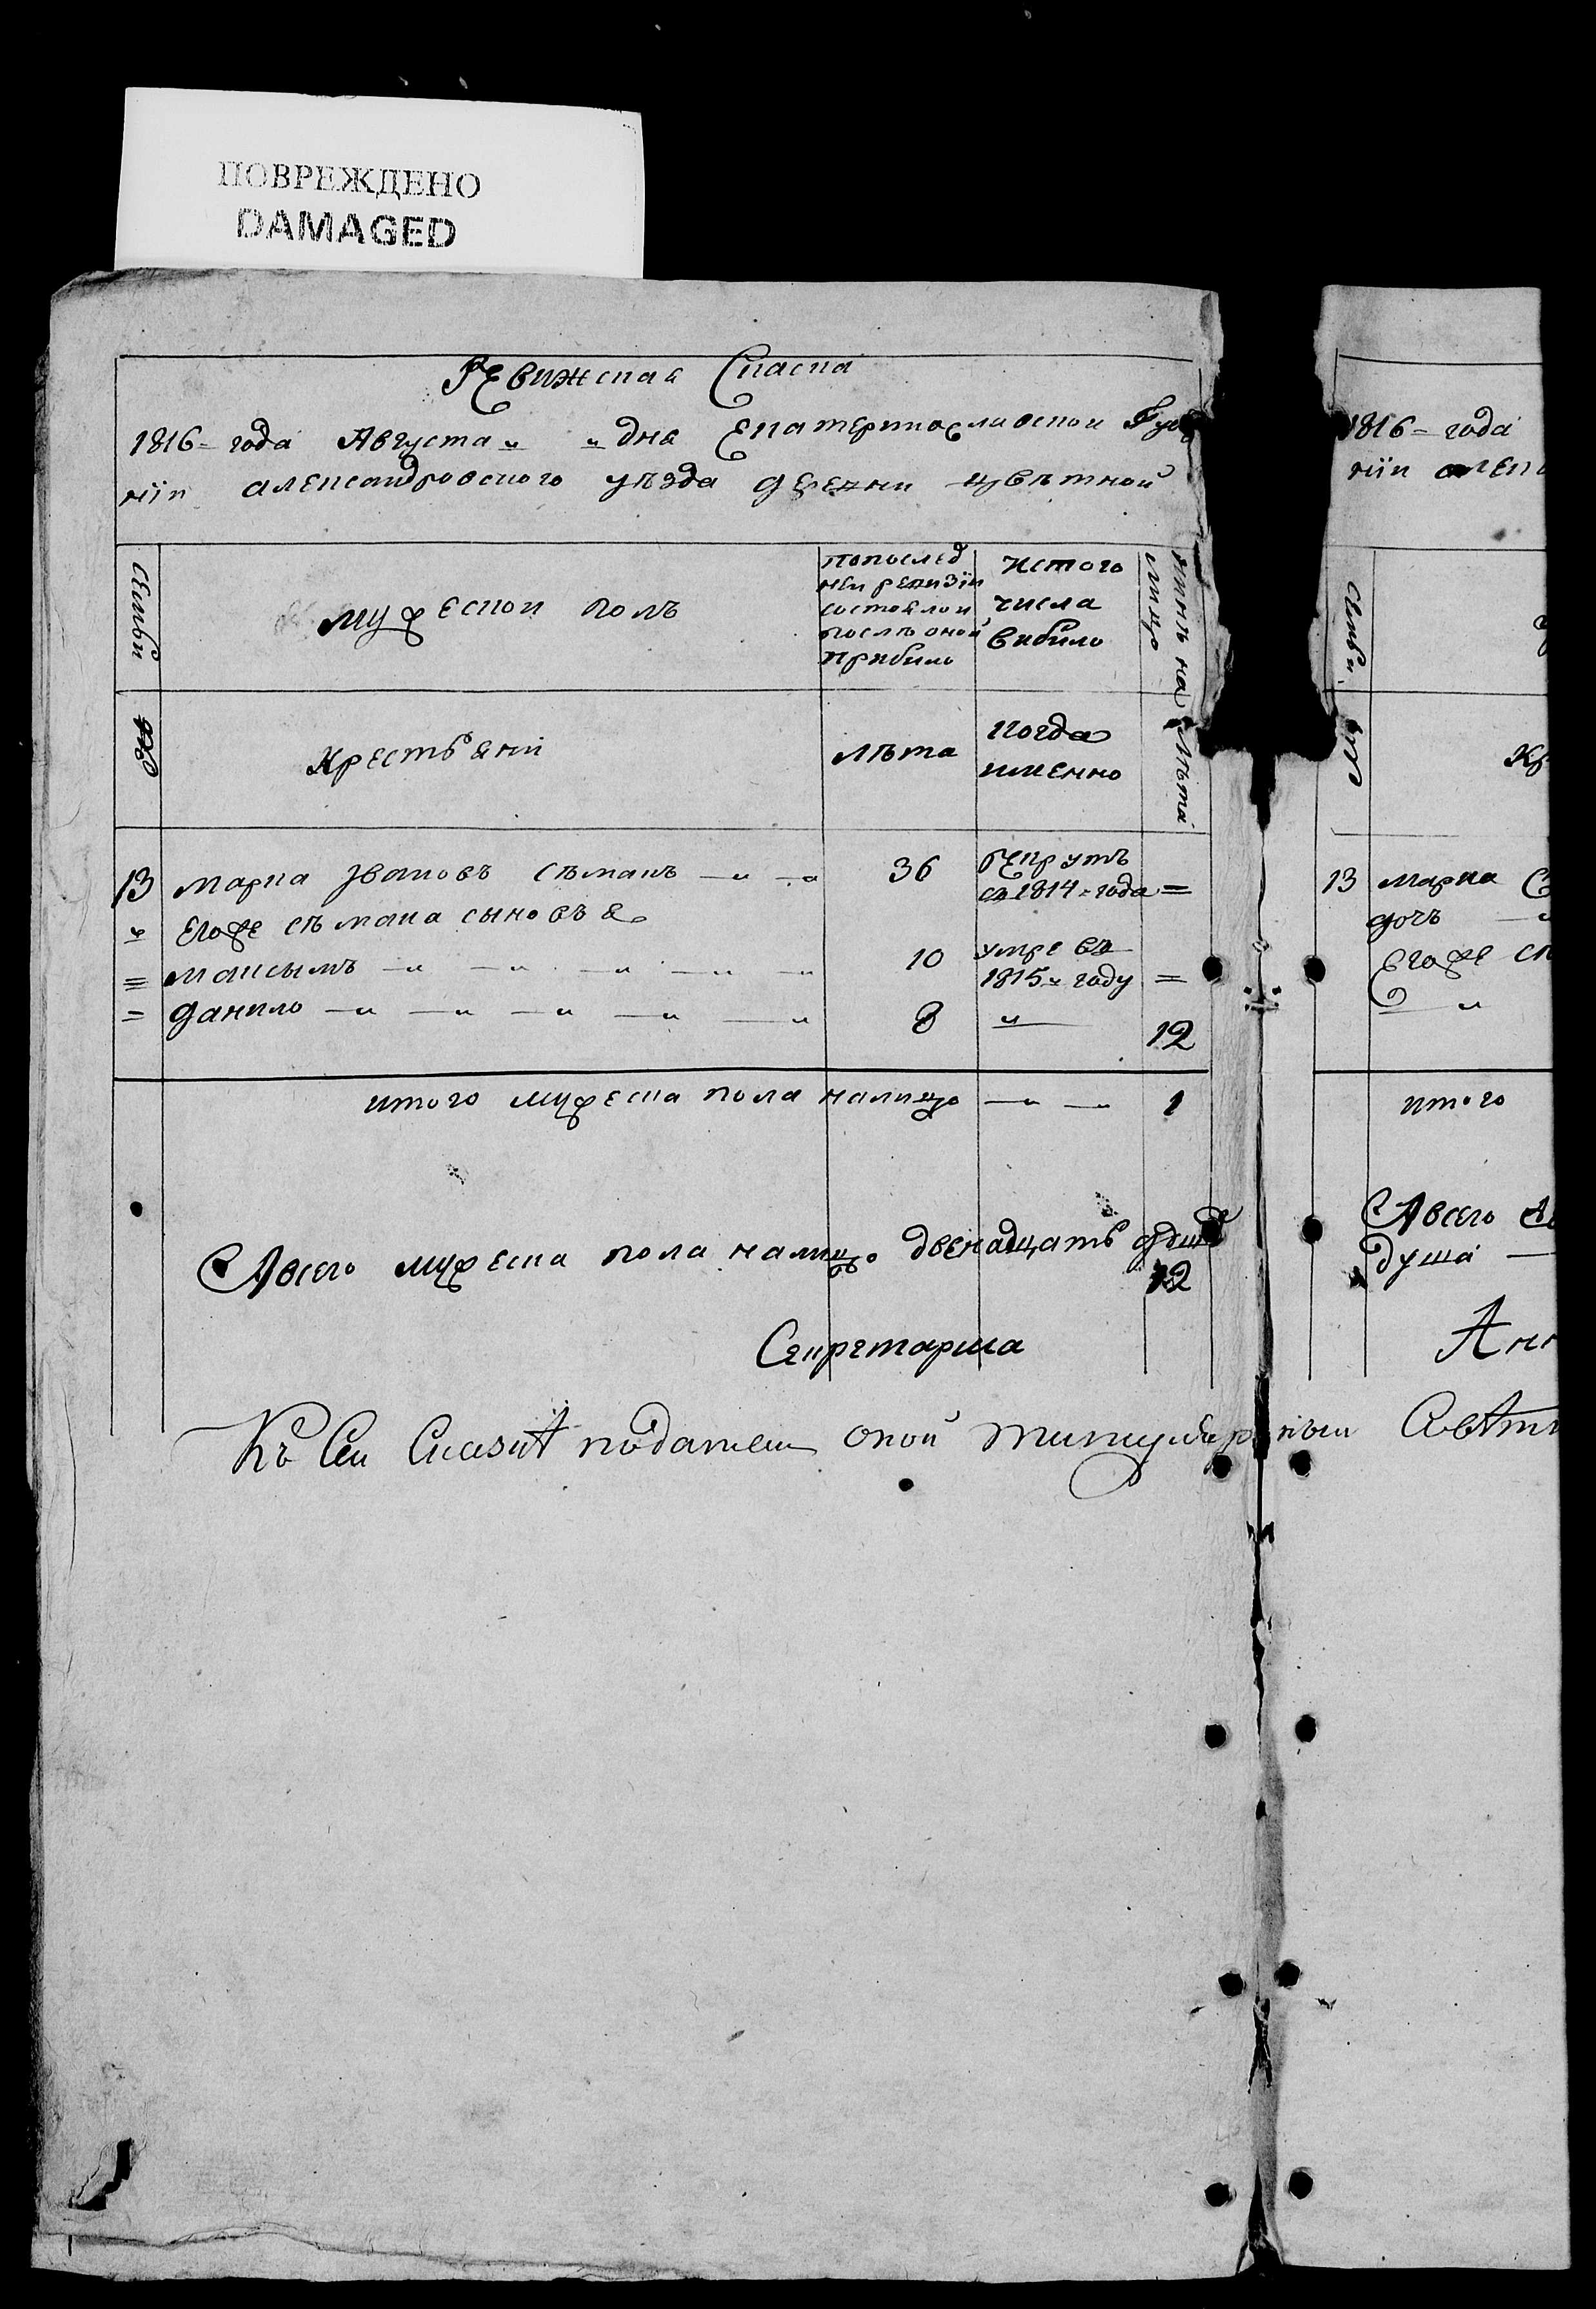 ПОВРЕЖДЕНО
DAMAGED
Ревижская Скаска
1816= года Августа „ „ дня Екатеринославской Губ
нїи александровского уѣзда деревни цвѣтной
Семьи
мужеской полъ
попослед
ней ревизїи
состояло и
послѣ оной
прибило
Истого
числа
вибило
нинѣ на
лицо
Крестьяни
лѣта
когда
именно
Лѣта
13 марка Ивановъ сѣмакъ — „ — „ 36 рекрутъ
съ 1814= года =
„ Егоже сѣмака сыновья
= максымъ — „ — „ — „ — „ — „ 10 умре въ
1815„ году =
= данило — „ — „ — „ — „ — „ 8 „ 12
итого мужеска пола налицо — „ — „ 1
Авсего мужеска пола налицо двенадцать душъ
12
Секретарша
Къ Сей Сказкѣ подателем оной титулярным Совѣтн
1816= года
нїи алекс
Семьи
Кр
13 марка С
дочъ — „
Егоже сѣ
— „
итого
Авсего
душа —
Анн